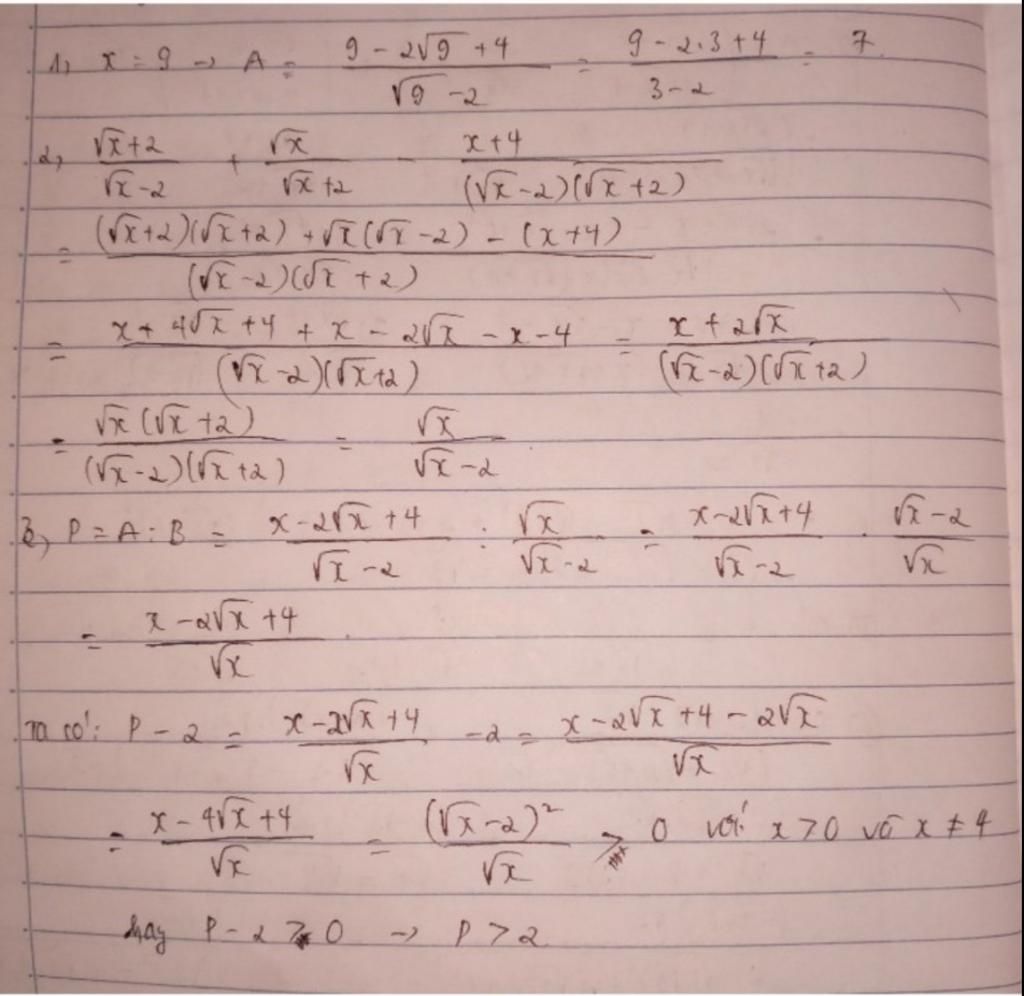 1, x = 9 → A = (9 - 2√9 + 4)/(√9 - 2) = (9 - 2.3 + 4)/(3 - 2) = 7
2, (√x + 2)/(√x - 2) + √x/(√x + 2) - (x + 4)/((√x - 2)(√x + 2))
= ((√x + 2)(√x + 2) + √x(√x - 2) - (x + 4))/((√x - 2)(√x + 2))
= (x + 4√x + 4 + x - 2√x - x - 4)/((√x - 2)(√x + 2)) = (x + 2√x)/((√x - 2)(√x + 2))
= (√x(√x + 2))/((√x - 2)(√x + 2)) = √x/(√x - 2)
3, P = A : B = (x - 2√x + 4)/(√x - 2) : √x/(√x - 2) = (x - 2√x + 4)/(√x - 2) . (√x - 2)/√x
= (x - 2√x + 4)/√x
Ta có: P - 2 = (x - 2√x + 4)/√x - 2 = (x - 2√x + 4 - 2√x)/√x
= (x - 4√x + 4)/√x = (√x - 2)²/√x > 0 với x > 0 và x ≠ 4
hay P - 2 > 0 → P > 2